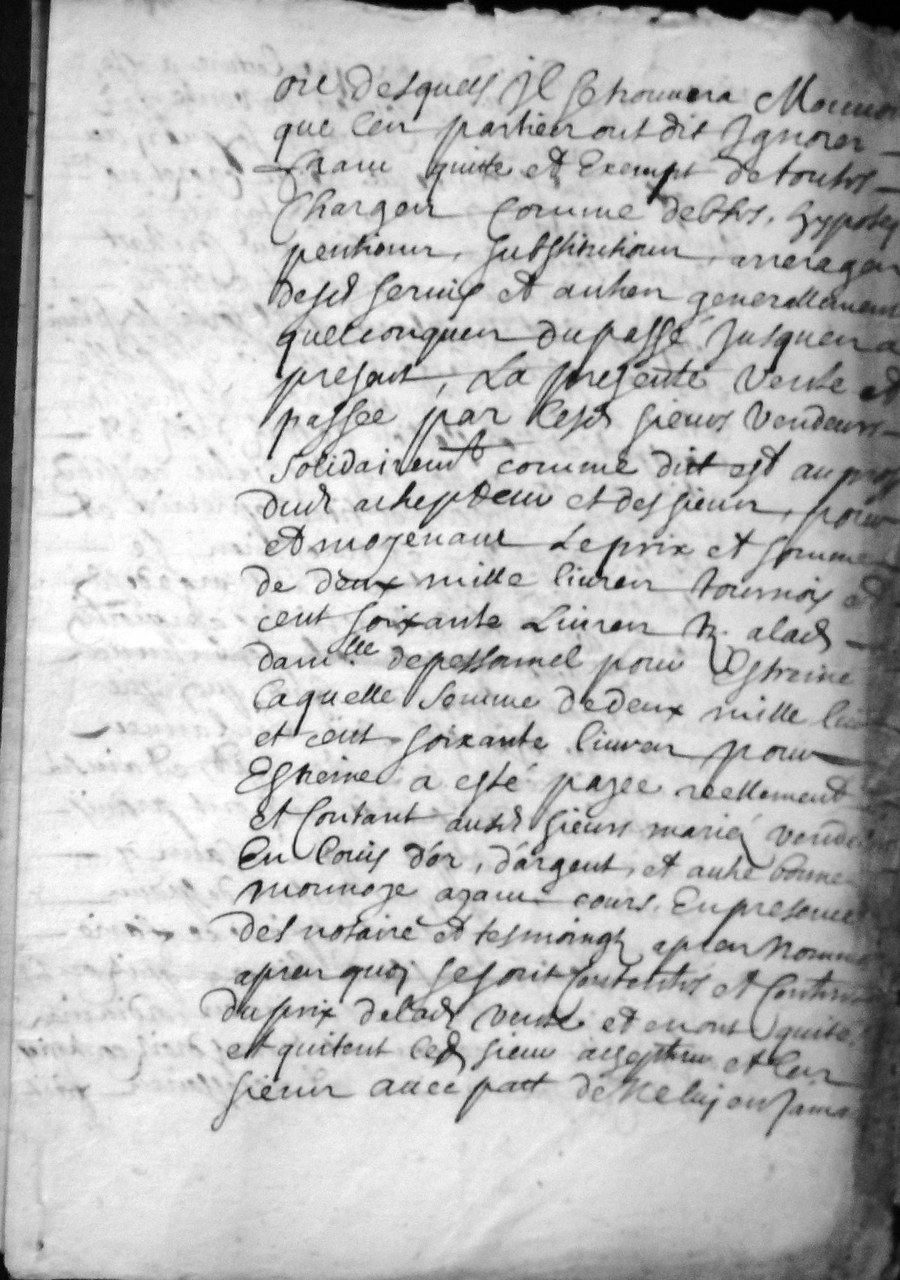 ou desquels Il se trouvera Mouvoir
que les parties ont dit Ignorer
franc quitte et Exempt de toutes
Charges comme debtes, hypoteq
pentions, substitutions, arrerages
desd servis et autres generallement
quelconques du passé Jusques a
presant, La presente vente est
passée par lesd sieurs vendeurs
solidairemt comme dict est au prof
dud achepteur et des siens, pour
et moyenant Le prix et somme
de deux mille livres tournois et
cent soixante Livres tz. a lad
damlle pour Estreine
laquelle somme de deux mille liv
et cent soixante livres pour
Estreine a esté payée reellement
et Contant ausd sieurs mariés vendeurs
en louis d'or, d'argent, et autre bonne
monnoye ayant cours, En presence
des notaire et tesmoingz apres nommés
apres quoy se sont contentés et
du prix de lad vente et en ont quitté
et quitent led sieur achepteur et les
siens avec pact de ne